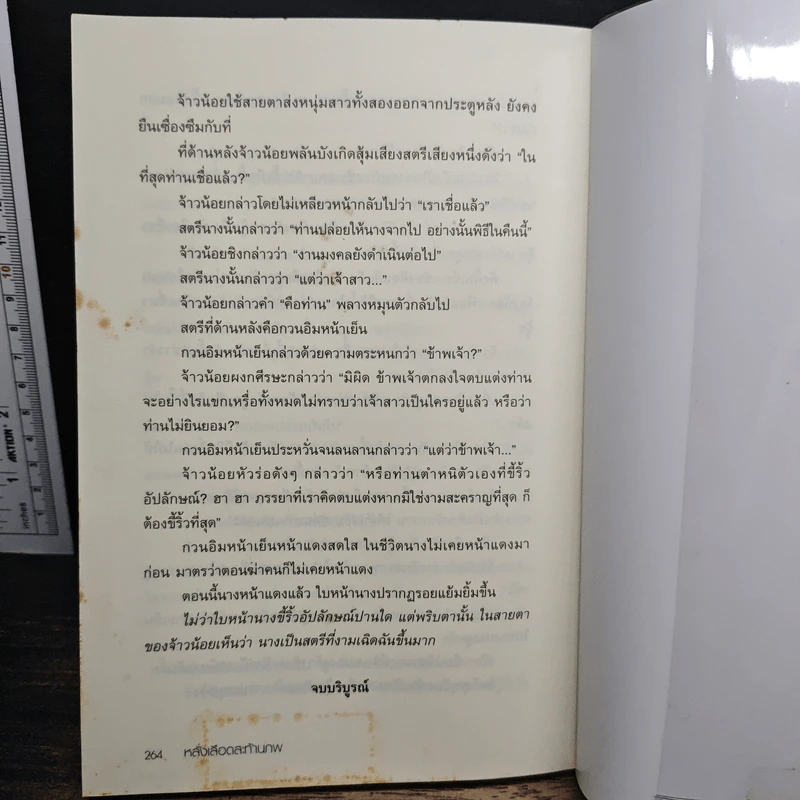 จ้าวน้อยใช้สายตาส่งหนุ่มสาวทั้งสองออกจากประตูหลัง ยังคง
ยืนเซื่องซึมกับที่
ที่ด้านหลังจ้าวน้อยพลันบังเกิดสุ้มเสียงสตรีเสียงหนึ่งดังว่า “ใน
ที่สุดท่านเชื่อแล้ว?”
จ้าวน้อยกล่าวโดยไม่เหลียวหน้ากลับไปว่า “เราเชื่อแล้ว”
สตรีนางนั้นกล่าวว่า “ท่านปล่อยให้นางจากไป อย่างนั้นพิธีในคืนนี้”
จ้าวน้อยชิงกล่าวว่า “งานมงคลยังดำเนินต่อไป”
สตรีนางนั้นกล่าวว่า “แต่ว่าเจ้าสาว...”
จ้าวน้อยกล่าวคำ “คือท่าน” พลางหมุนตัวกลับไป
สตรีที่ด้านหลังคือกวนอิมหน้าเย็น
กวนอิมหน้าเย็นกล่าวด้วยความตระหนกว่า “ข้าพเจ้า?”
จ้าวน้อยผงกศีรษะกล่าวว่า “มิผิด ข้าพเจ้าตกลงใจตบแต่งท่าน
จะอย่างไรแขกเหรื่อทั้งหมดไม่ทราบว่าเจ้าสาวเป็นใครอยู่แล้ว หรือว่า
ท่านไม่ยินยอม?”
กวนอิมหน้าเย็นประหวั่นจนลนลานกล่าวว่า “แต่ว่าข้าพเจ้า...”
จ้าวน้อยหัวร่อดังๆ กล่าวว่า “หรือท่านตำหนิตัวเองที่ขี้ริ้ว
อัปลักษณ์? ฮา ฮา ภรรยาที่เราคิดตบแต่งหากมิใช่งามสะคราญที่สุด ก็
ต้องขี้ริ้วที่สุด”
กวนอิมหน้าเย็นหน้าแดงสดใส ในชีวิตนางไม่เคยหน้าแดงมา
ก่อน มาตรว่าตอนฆ่าคนก็ไม่เคยหน้าแดง
ตอนนี้นางหน้าแดงแล้ว ใบหน้านางปรากฏรอยแย้มยิ้มขึ้น
ไม่ว่าใบหน้านางขี้ริ้วอัปลักษณ์ปานใด แต่พริบตานั้น ในสายตา
ของจ้าวน้อยเห็นว่า นางเป็นสตรีที่งามเฉิดฉันขึ้นมาก
จบบริบูรณ์
264 หลั่งเลือดสะท้านภพ